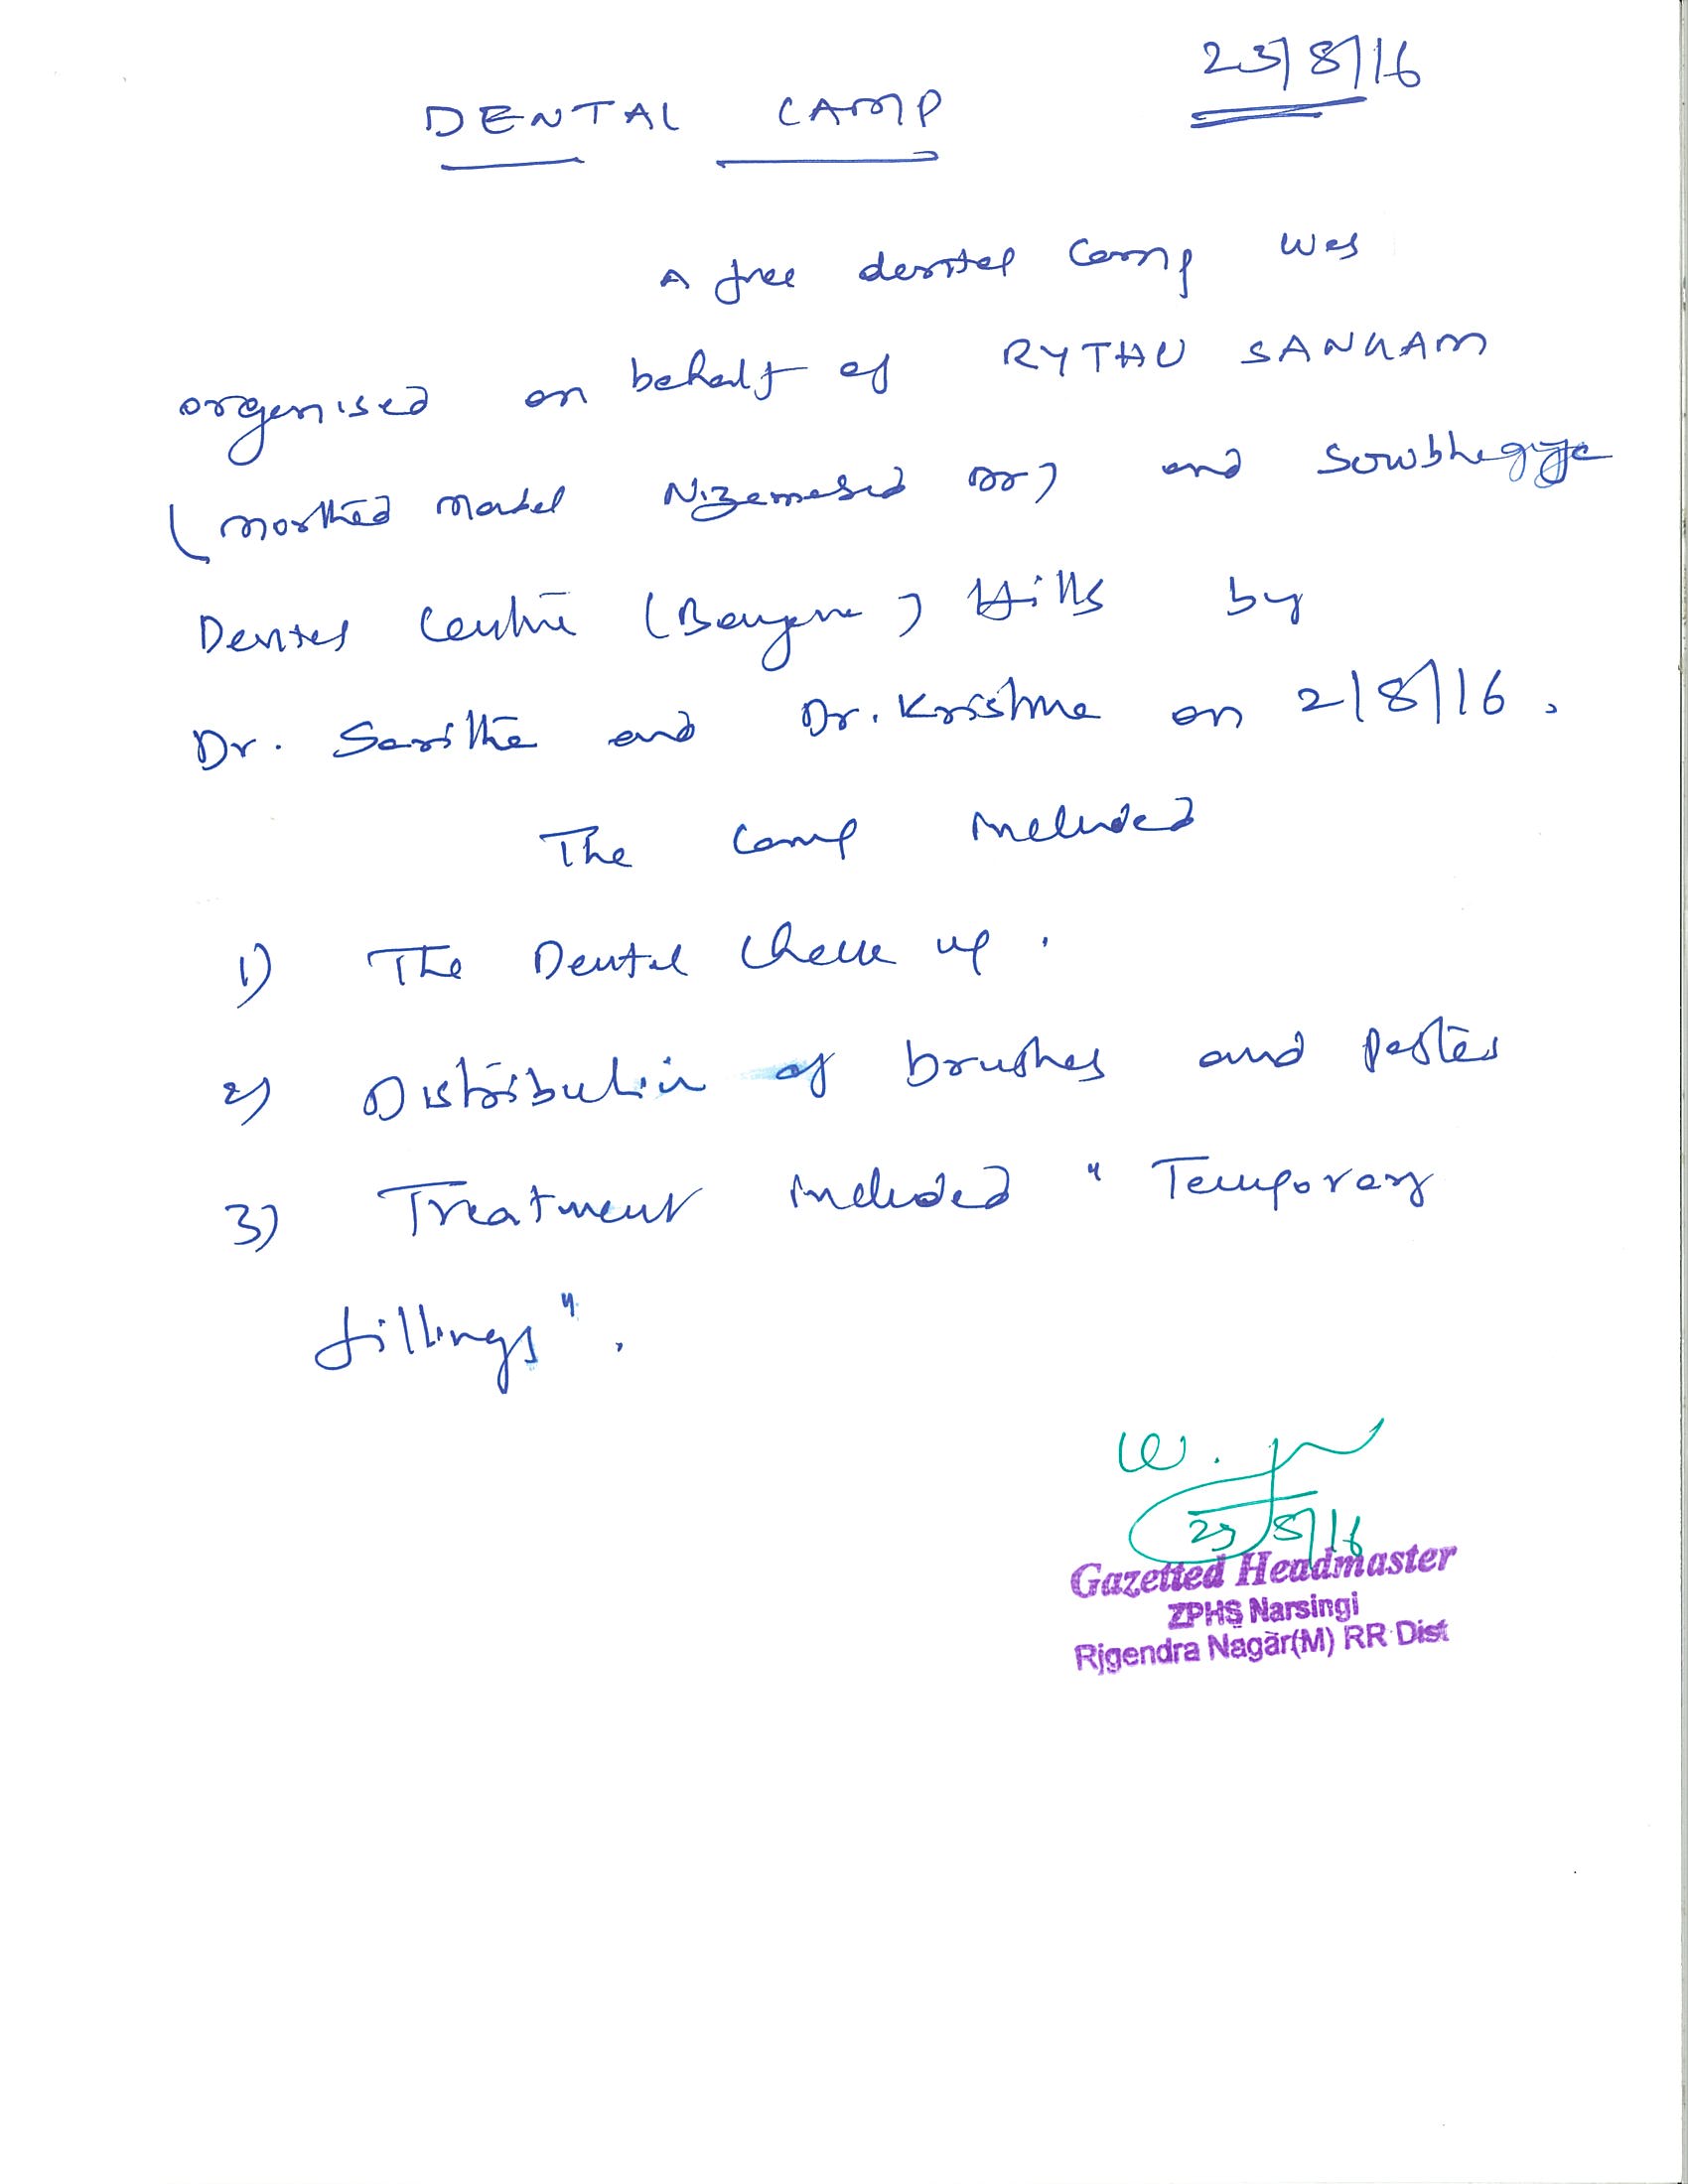 23/8/16
DENTAL CAMP
A free dental camp was
organised on behalf of RYTHU SANGAM
(Morthad Mandal Nizamabad ) and Sowbhagya
Dental Centre (Banjara) Hills by
Dr. Saritha and Dr. Krishna on 2/8/16.
The camp included
1) The Dental check up.
2) Distribution of brushes and pastes
3) Treatment included "Temporary
fillings".
23/8/16
Gazetted Headmaster
ZPHS Narsingi
Rjgendra Nagar(M) RR Dist